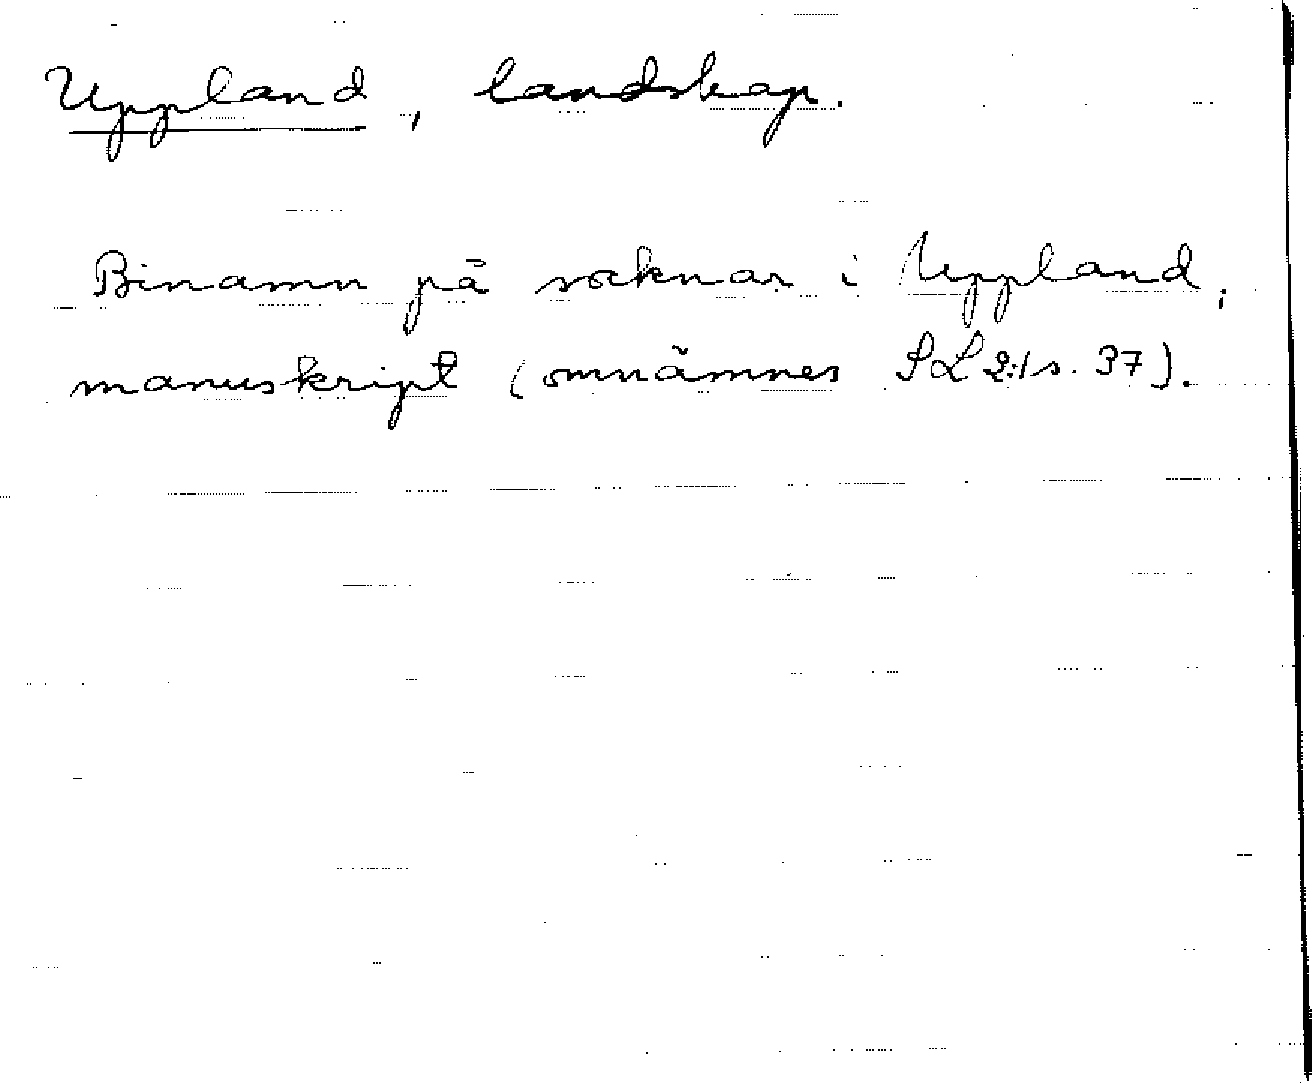 Uppland, landskap.
Binamn på socknar i Uppland,
manuskript (omnämnes SL 2:1 s. 37).